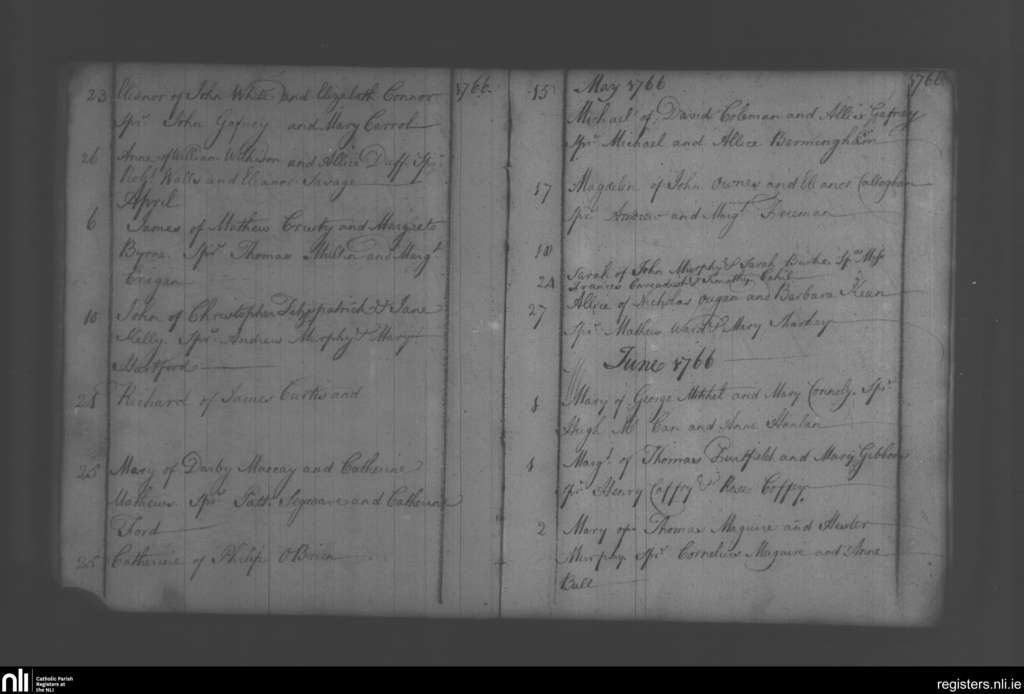 1766
23 Eleanor of John White and Elizabeth Connor
Spr. John Gafney and Mary Carrol
26 Anne of William and Allice Duff Spr.
Robt. Watts and Eleanor Savage
April
6 James of Mathew Crusty and Margreto
Byrne. Spr. Thomas Mullin and Margt.
Cregan
10 John of Christopher Fitzpatrick & Jane
Kelly. Spr. Andrew Murphy & Mary
Hartford
21 Richard of James Curtis and
25 Mary of Darby Maccay and Catherine
Mathews Spr. Patt. Segrave and Catherine
Ford
25 Catherine of Philip OBrien
1766
May 1766
15 Michael of David Coleman and Allice Gafney
Spr. Michael and Allice Bermingham
17 Magdelin of John Ownes and Eleanor Callaghan
Spr. Andrew and Margt. Freeman
18
24 Sarah of John Murphy & Sarah Burke. Sprs. Miss
Frances Cavendish & Timothy Cahil
27 Allice of Nicholas Dugan and Barbara Keen
Spr. Mathew Ward & Mary Markey
June 1766
1 Mary of George Mitchel and Mary Connely. Spr.
Hugh Mc. Can and Anne Hanlan
1 Margt. of Thomas and Mary Gibbons
Spr. Henry Coffy & Rose Coffy.
2 Mary of Thomas Maguire and Hester
Murphy Spr. Cornelius Maguire and Anne
Ball
nli
Catholic Parish
Registers at
the NLI
registers.nli.ie